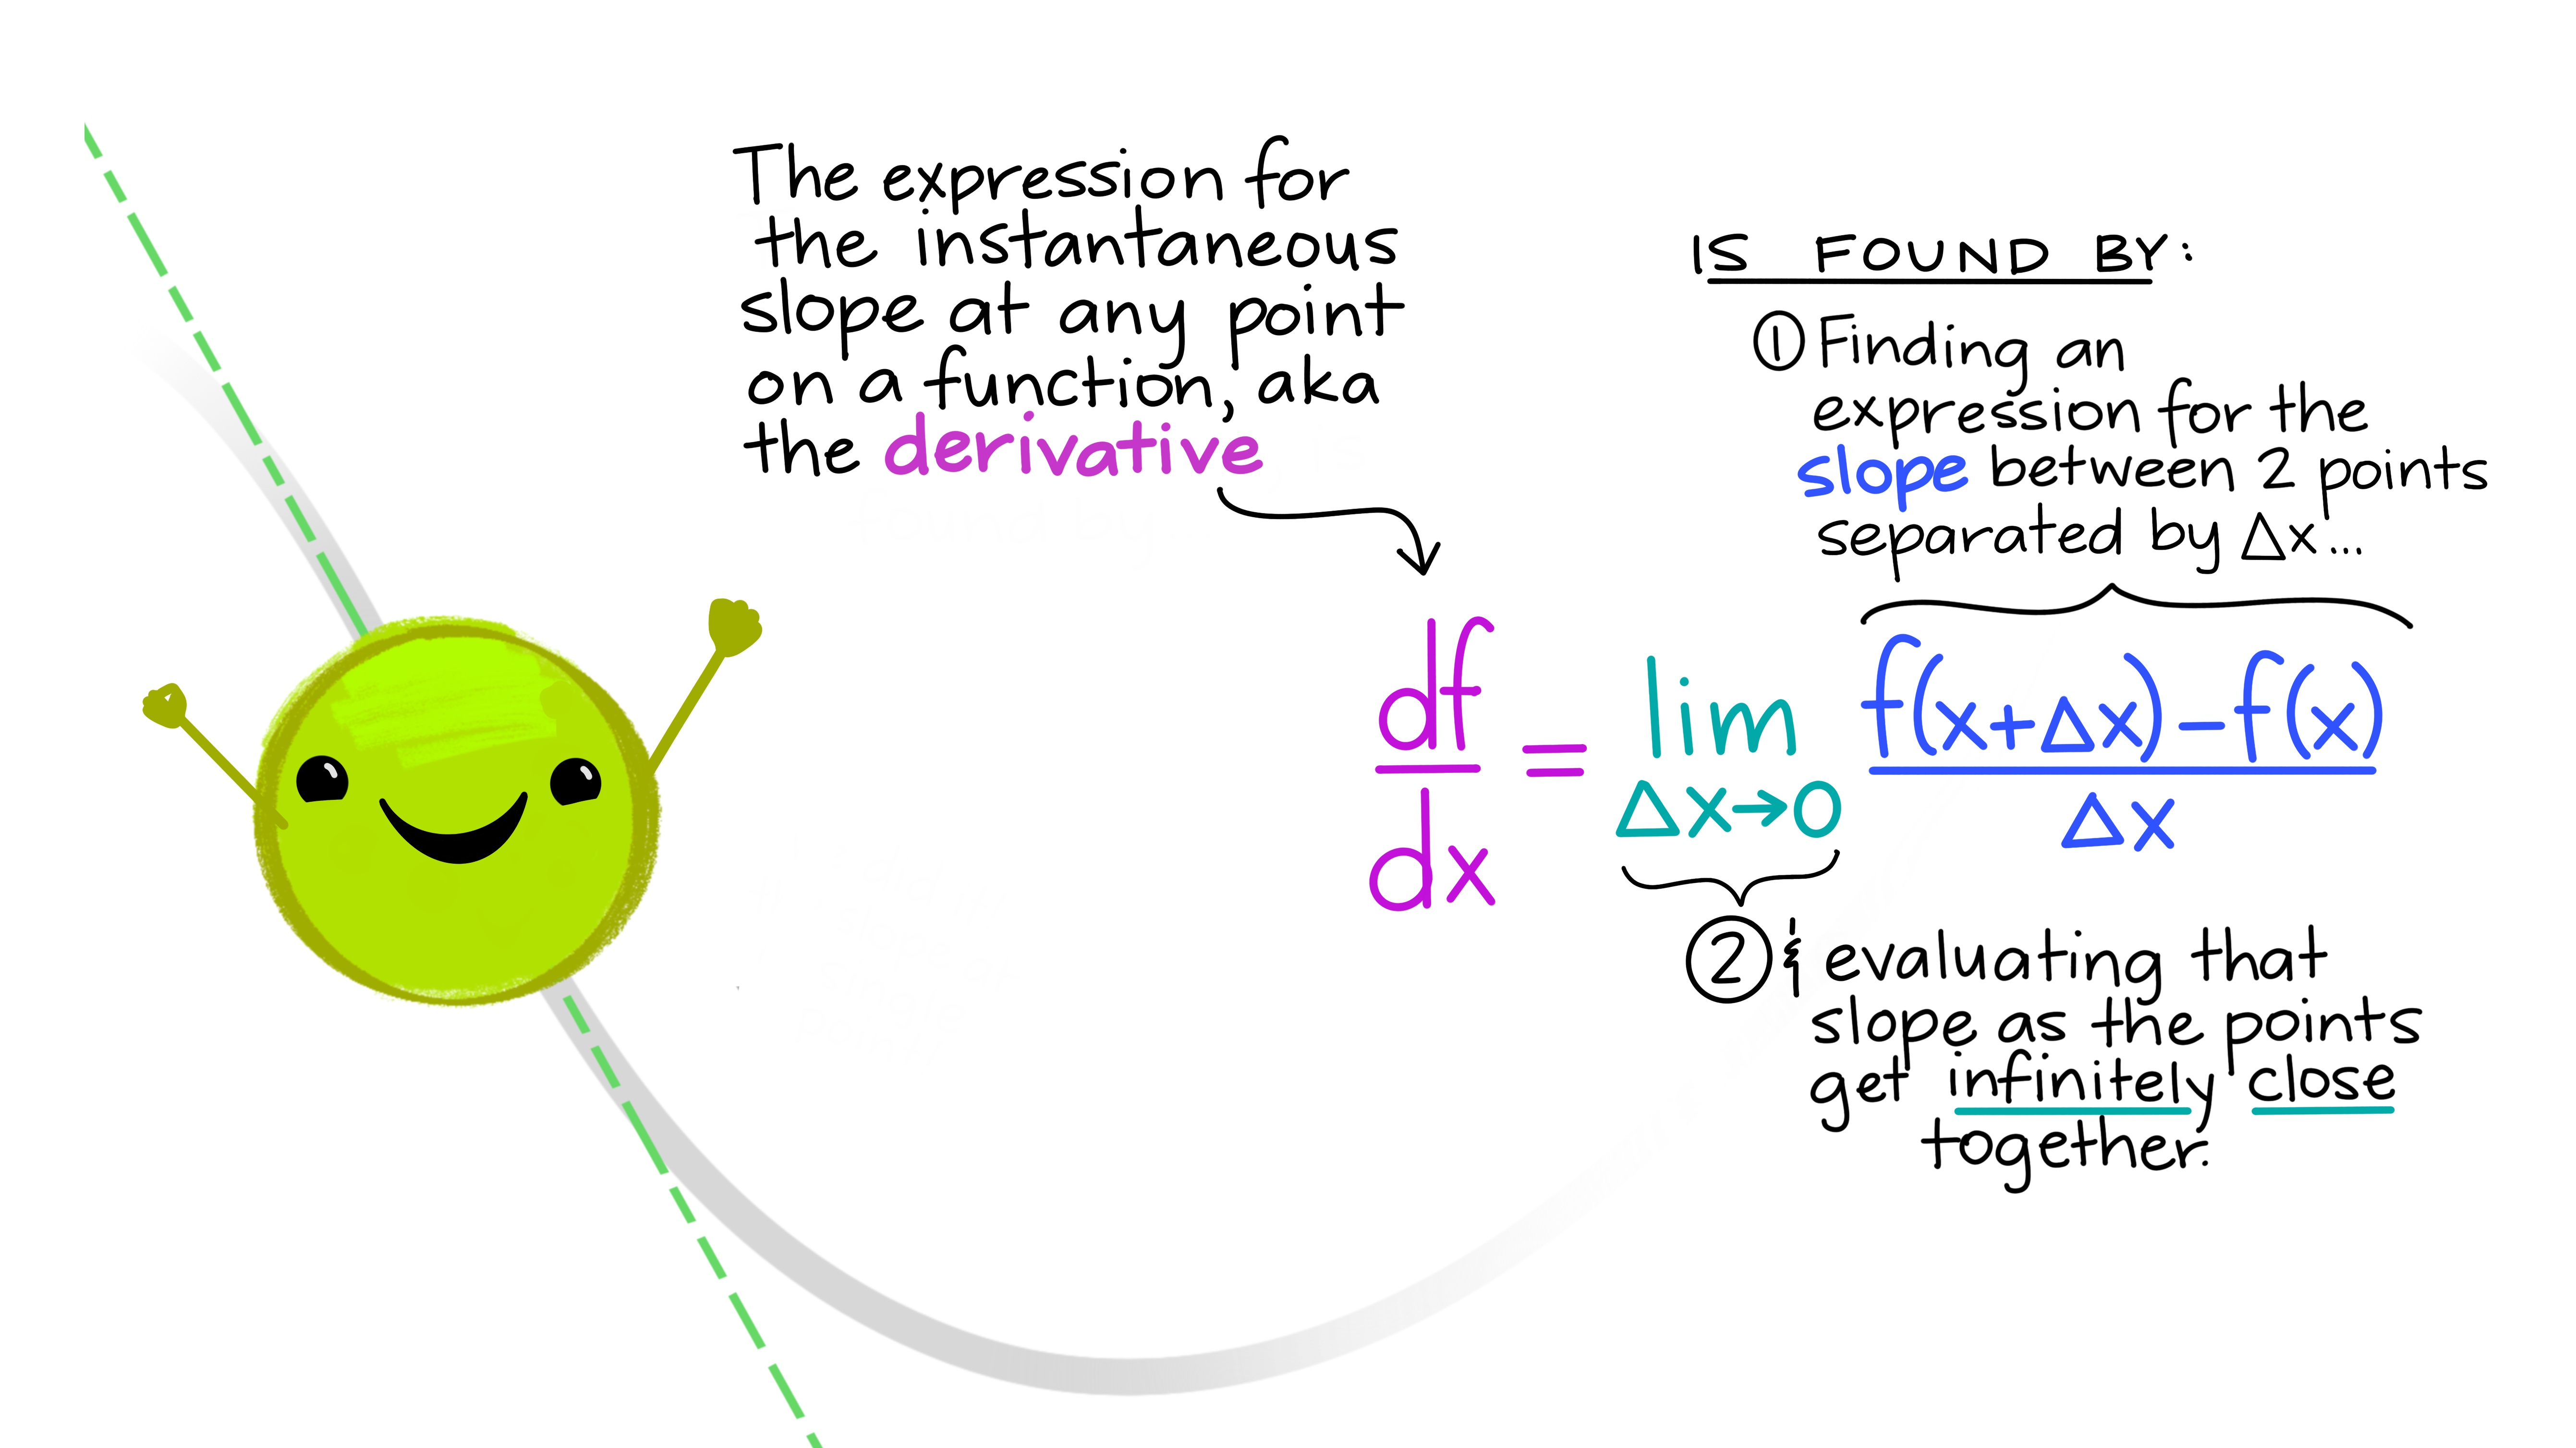 The expression for
the instantaneous
slope at any point
on a function, aka
the derivative
IS FOUND BY:
① Finding an
expression for the
slope between 2 points
separated by Δx...
df
dx
=
lim
Δx→0
f(x+Δx)-f(x)
Δx
② & evaluating that
slope as the points
get infinitely close
together.